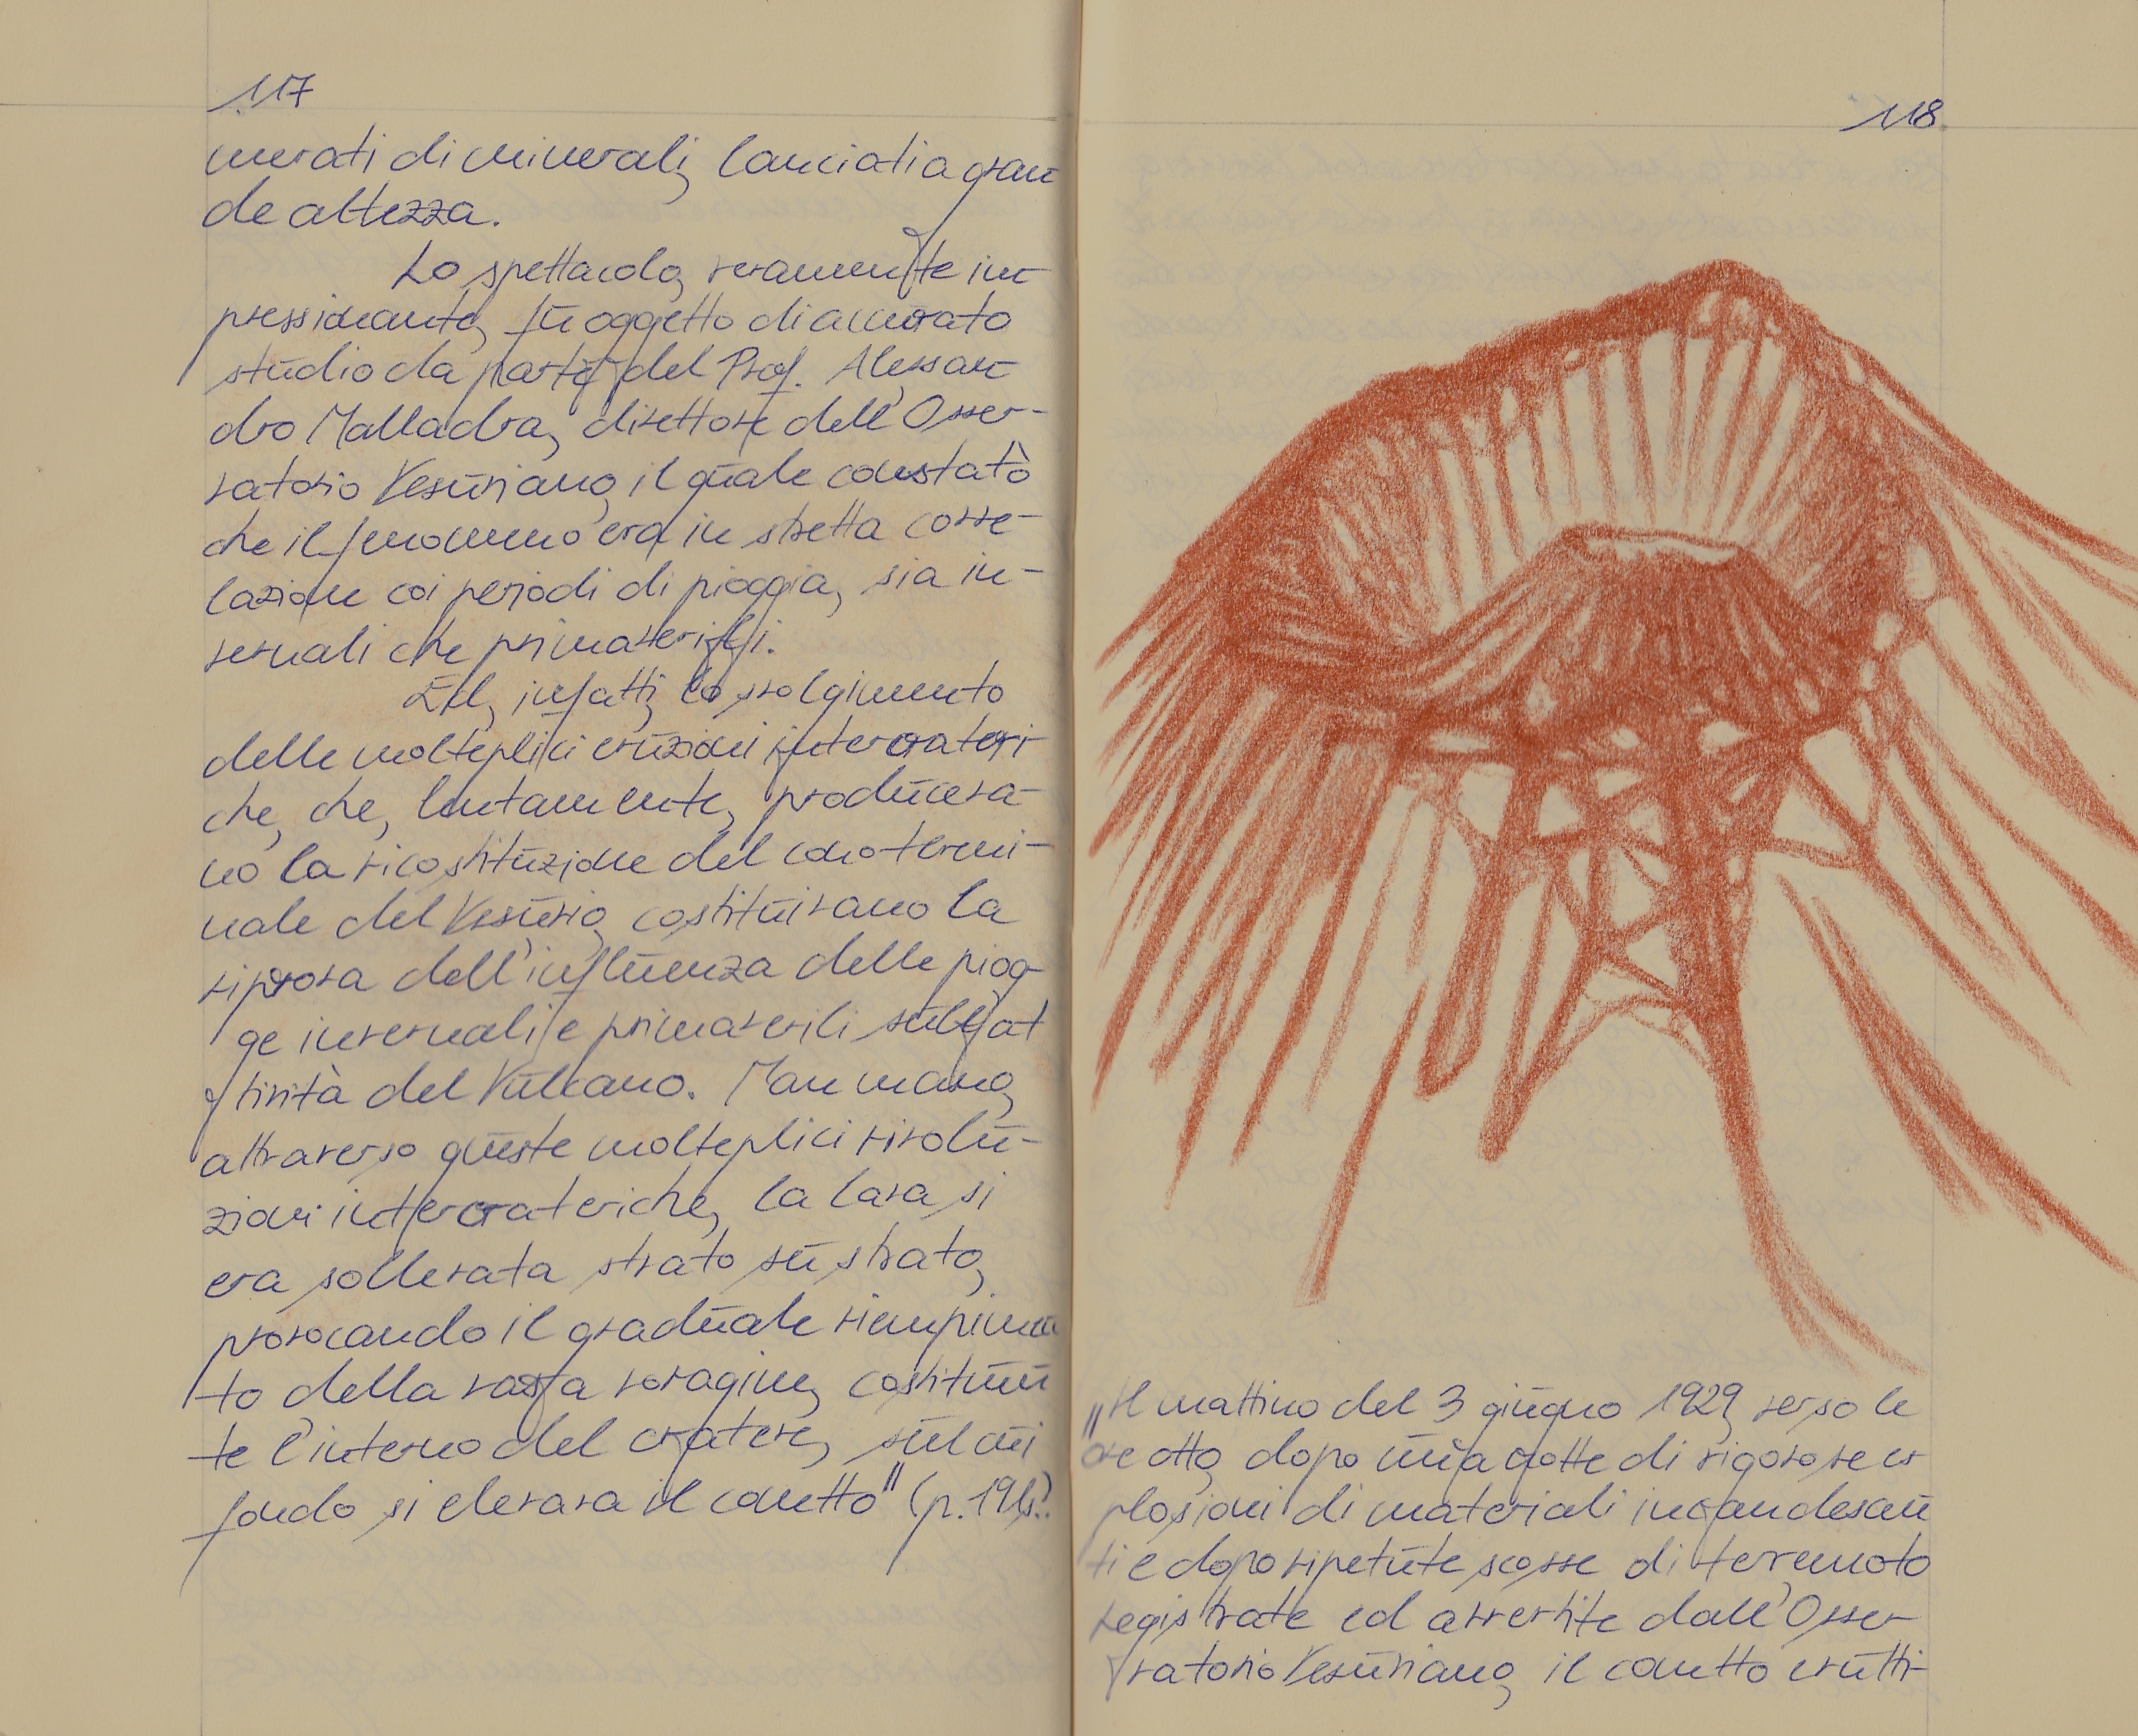 117
merati di minerali, lanciati a gran
de altezza.
Lo spettacolo, veramente im-
pressionante, fu oggetto di accurato
studio da parte del Prof. Alessan-
dro Malladra, direttore dell'Osser-
vatorio Vesuviano, il quale constatò
che il fenomeno era in stretta corre-
lazione coi periodi di pioggia, sia in-
vernali che primaverili.
Ed, infatti, lo svolgimento
delle molteplici eruzioni intercrateri-
che, che, lentamente, produceva-
no la ricostituzione del cono termi-
nale del Vesuvio, costituivano la
riprova dell'influenza delle piog-
ge invernali e primaverili sull'at
tività del Vulcano. Man mano,
attraverso queste molteplici rivolu-
zioni intercrateriche, la lava si
era sollevata strato su strato,
provocando il graduale riempimen
to della vasta voragine, costituen
te l'interno del cratere, sul cui
fondo si elevava il conetto" (p.19/s.).
118
"Il mattino del 3 giugno 1929, verso le
ore otto, dopo una notte di vigorose es
plosioni di materiali incandescen
ti e dopo ripetute scosse di terremoto
registrate ed avvertite dall'Osser-
vatorio Vesuviano, il conetto erutti-